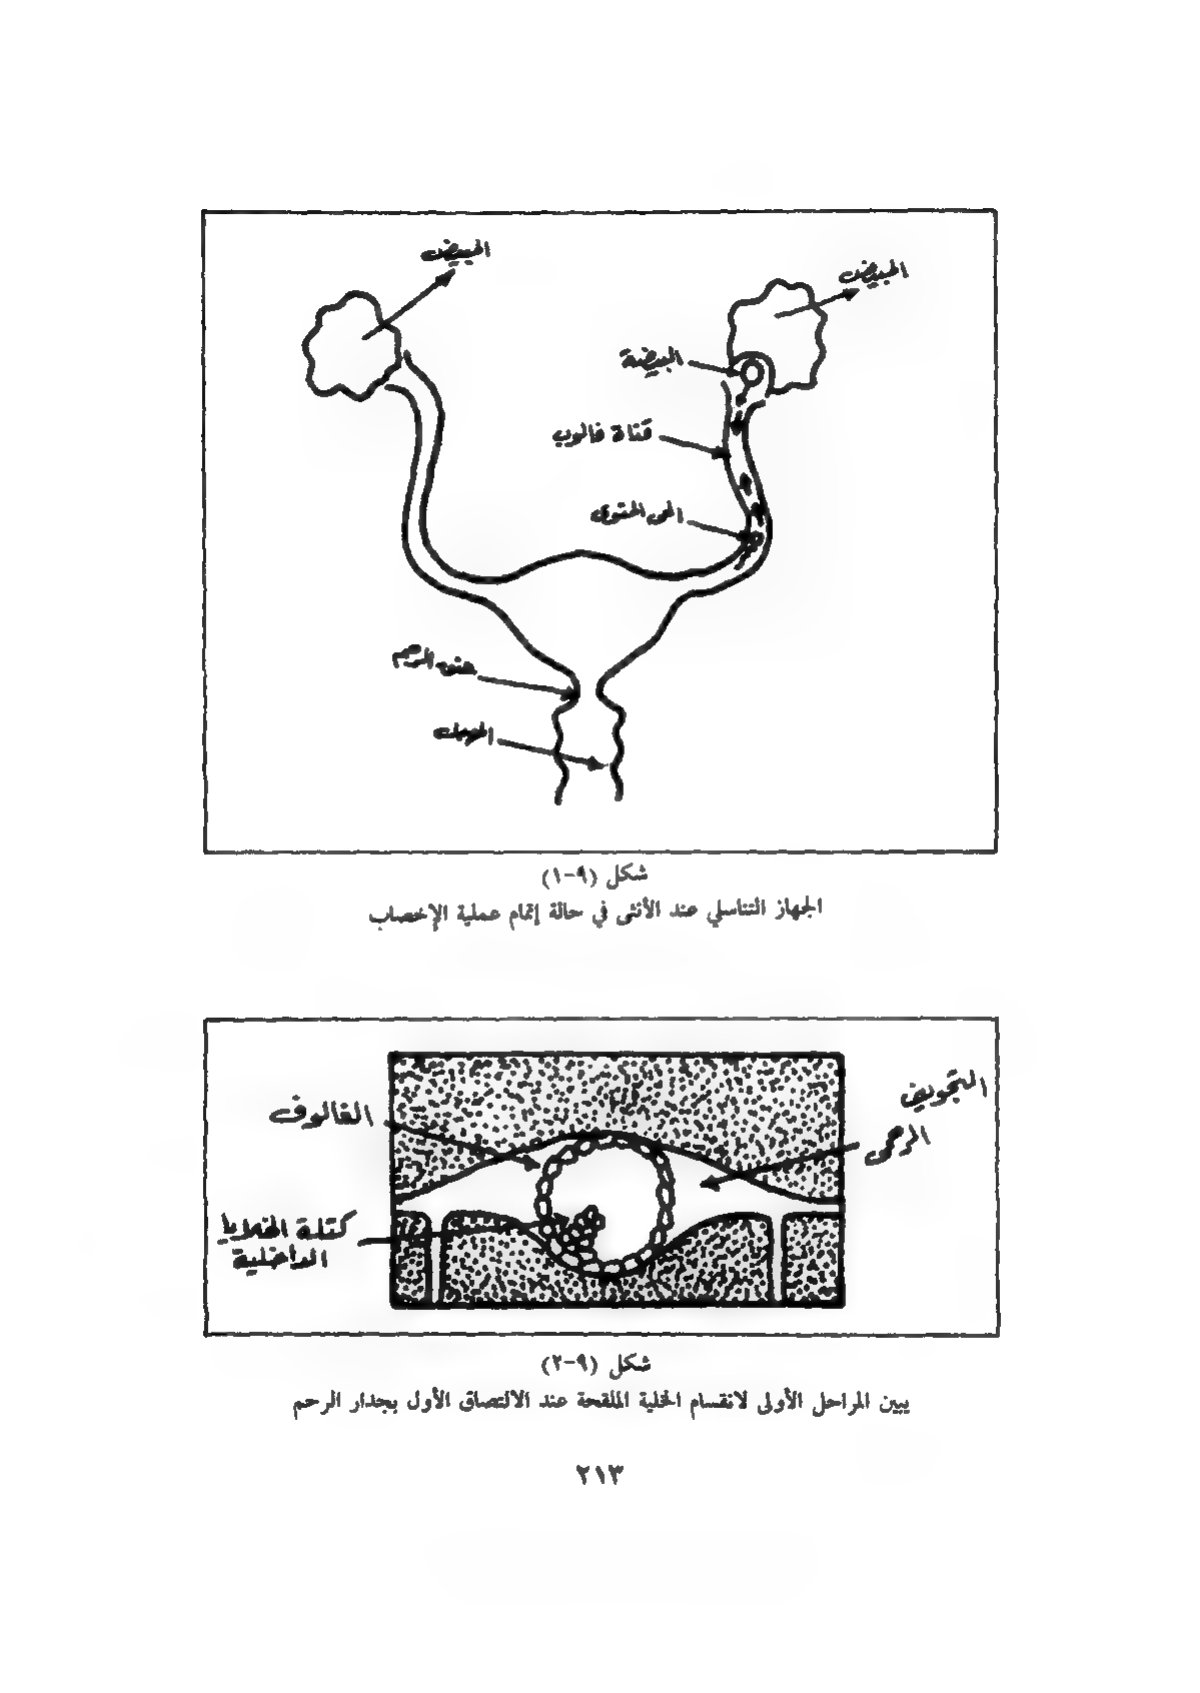 المبيض
المبيض
البيضة
قناة فالوب
الحى المنوى
عنق الرحم
المهبل
شكل (٩-١)
الجهاز التناسلي عند الأنثى في حالة إتمام عملية الإخصاب
التجويف
الرحمى
الغالوف
كتلة الخلايا
الداخلية
شكل (٩-٢)
يبين المراحل الأولى لانقسام الخلية الملقحة عند الالتصاق الأول بجدار الرحم
٢١٣